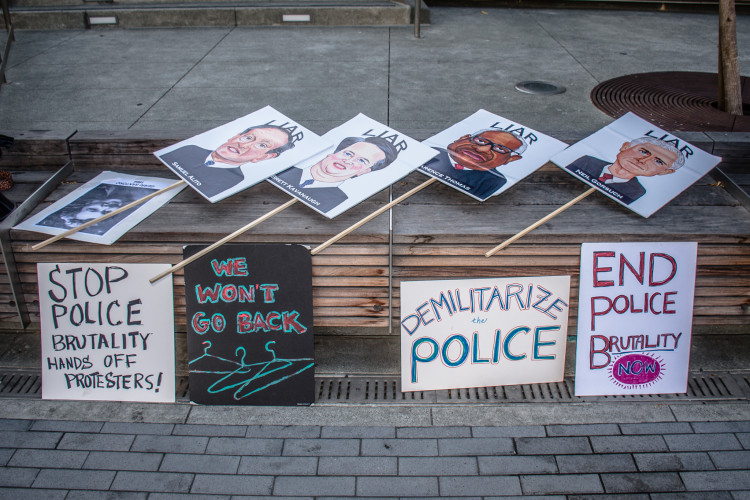 LIAR
SAMUEL ALITO
LIAR
BRETT KAVANAUGH
LIAR
CLARENCE THOMAS
LIAR
NEIL GORSUCH
STOP
POLICE
BRUTALITY
HANDS OFF
PROTESTERS!
WE
WON'T
GO BACK
DEMILITARIZE
the
POLICE
END
POLICE
BRUTALITY
NOW